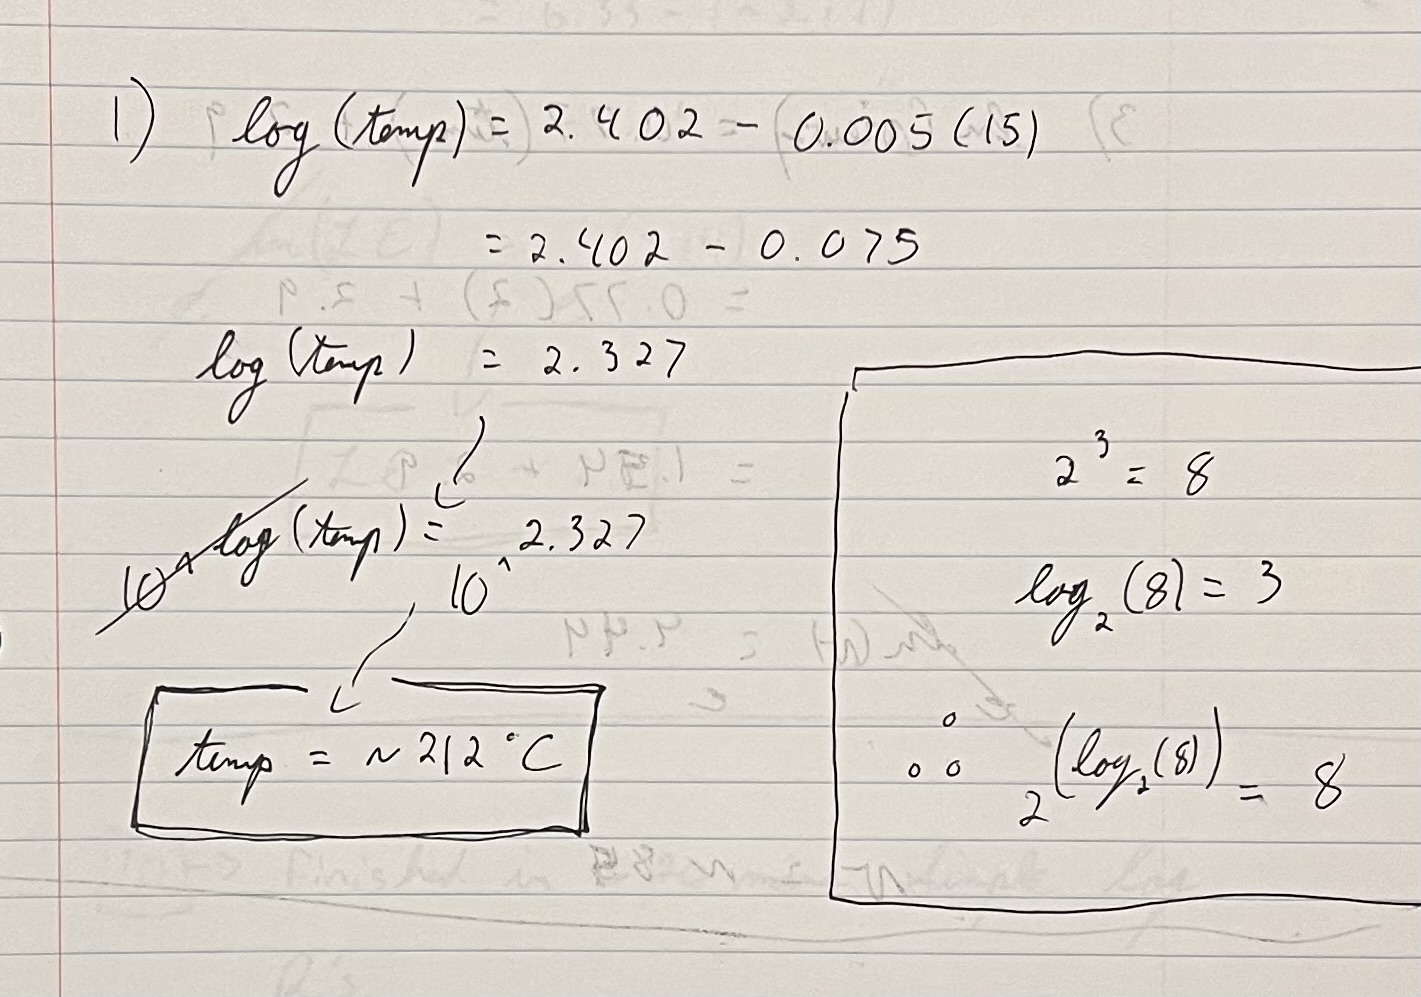 1) log (temp) = 2.402 - 0.005 (15)
= 2.402 - 0.075
log (temp) = 2.327
10^log (temp) = 10^2.327
temp = ~212°C
2³ = 8
log₂ (8) = 3
∴ 2^(log₂(8)) = 8